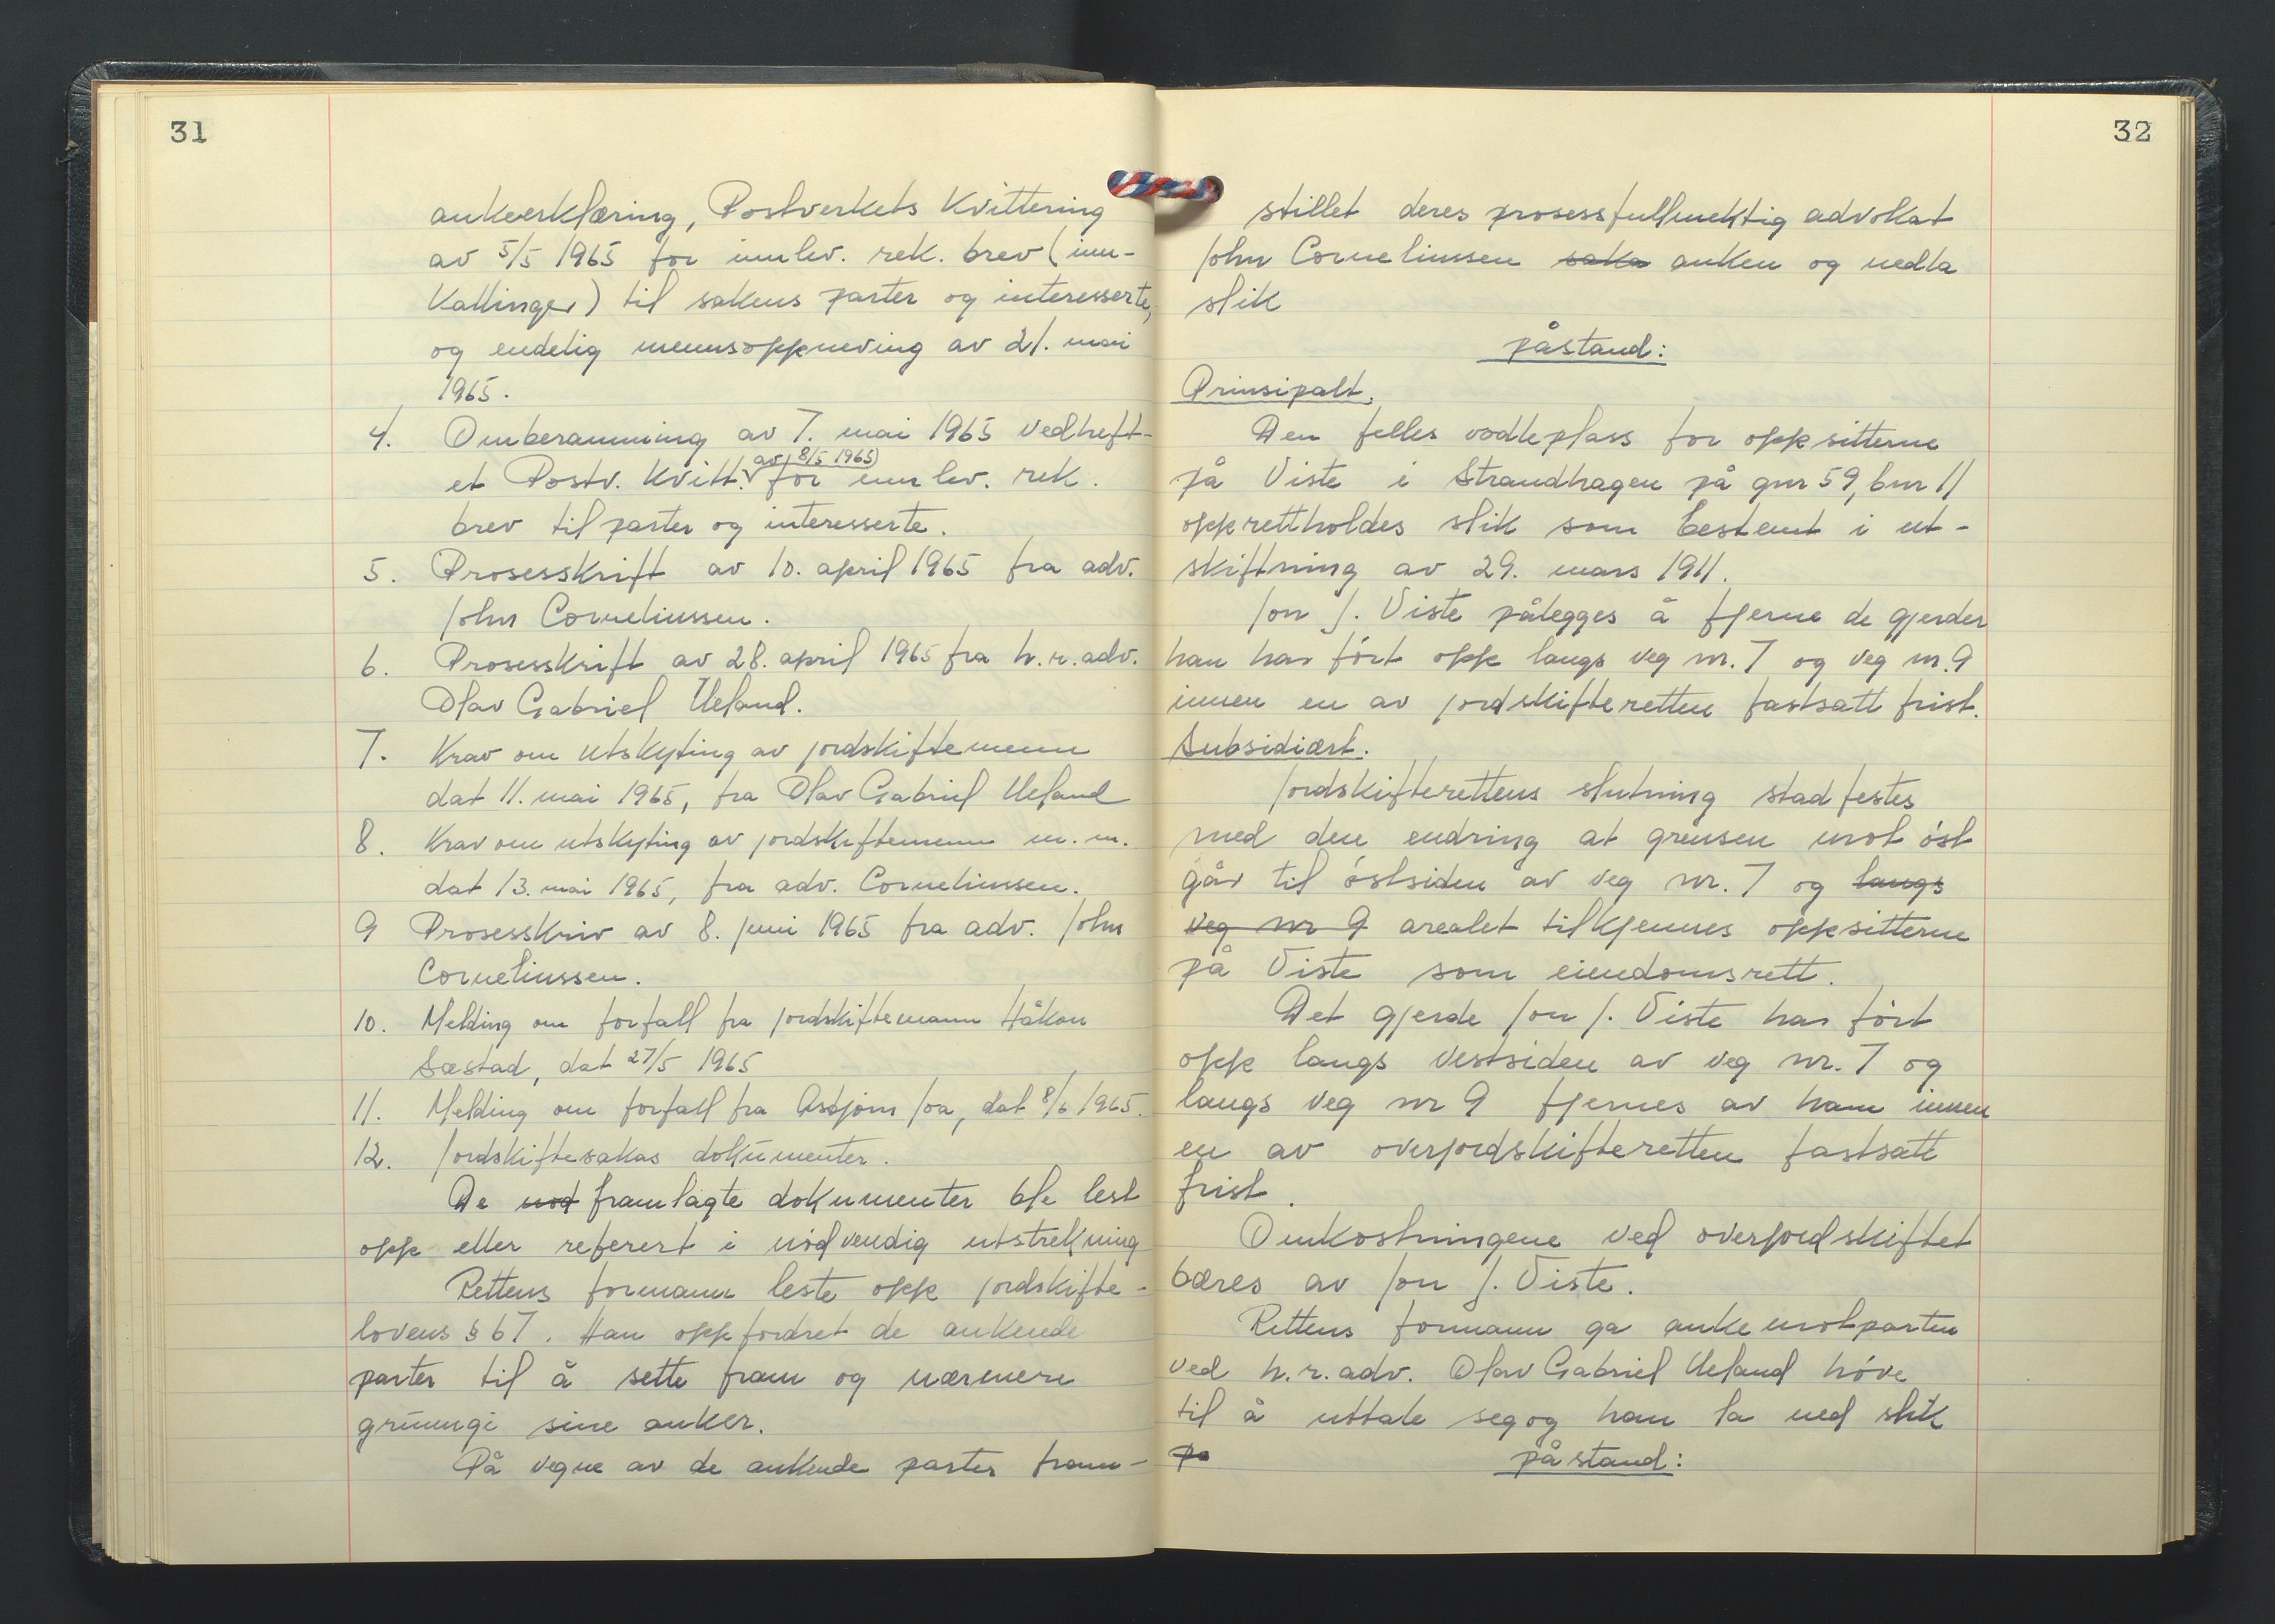 31
ankeerklæring, Postverkets Kvittering
av 5/5 1965 for innlev. rek. brev (inn-
kallinger) til sakens parter og interesserte,
og endelig mennsoppnevning av 21. mai
1965.
4. Omberamming av 7. mai 1965 vedheft-
et Postv. kvitt. av 8/5 1965 for innlev. rek.
brev til parter og interesserte.
5. Prosesskrift av 10. april 1965 fra adv.
John Corneliussen.
6. Prosesskrift av 28. april 1965 fra h.r.adv.
Olav Gabriel Ueland.
7. Krav om utskyting av jordskiftemenn
dat 11. mai 1965, fra Olav Gabriel Ueland
8. Krav om utskyting av jordskiftemenn m.m.
dat 13. mai 1965, fra adv. Corneliussen.
9 Prosesskriv av 8. juni 1965 fra adv. John
Corneliussen.
10. Melding om forfall fra jordskiftemann Håkon
Sæstad, dat 27/5 1965
11. Melding om forfall fra Asbjørn Joa, dat 8/6 1965.
12. Jordskiftesakas dokumenter.
De nød framlagte dokumenter ble lest
opp eller referert i nødvendig utstrekning
Rettens formann leste opp jordskifte-
lovens § 67. Han oppfordret de ankende
parter til å sette fram og nærmere
grunngi sine anker.
På vegne av de ankende parter fram-
32
stillet deres prosessfullmektig advokat
John Corneliussen saka anken og nedla
slik
påstand:
Prinsipalt.
Den felles vodleplass for oppsitterne
på Viste i Strandhagen på gnr 59, bnr 11
opprettholdes slik som bestemt i ut-
skiftning av 29. mars 1911.
Jon J. Viste pålegges å fjerne de gjerder
han har ført opp langs veg nr. 7 og veg nr. 9
innen en av jordskifteretten fastsatt frist.
Subsidiært.
Jordskifterettens slutning stadfestes
med den endring at grensen mot øst
går til østsiden av veg nr. 7 og langs
veg nr 9 arealet tilkjennes oppsitterne
på Viste som eiendomsrett.
Det gjerde Jon J. Viste har ført
opp langs vestsiden av veg nr. 7 og
langs veg nr 9 fjernes av ham innen
en av overjordskifteretten fastsatt
frist.
Omkostningene ved overjordskiftet
bæres av Jon J. Viste.
Rettens formann ga ankemotparten
ved h.r.adv. Olav Gabriel Ueland høve
til å uttale seg og han la ned slik
pa påstand: